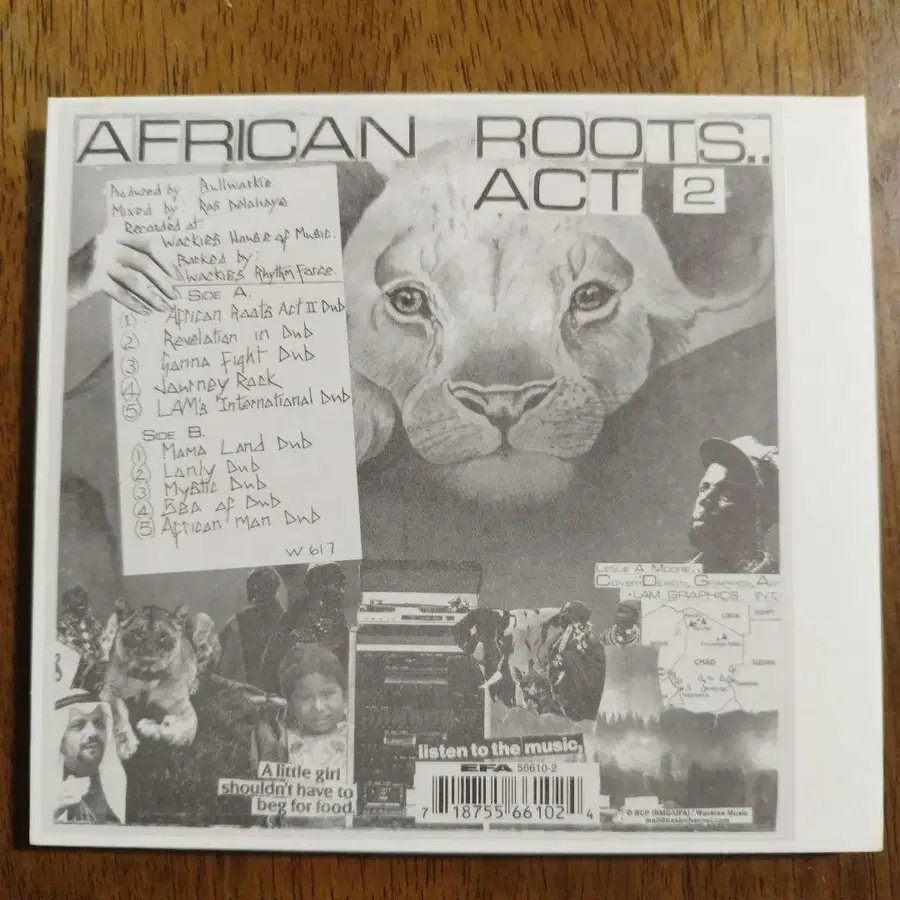 AFRICAN ROOTS..
ACT 2
Produced by : Bullwackie.
Mixed by : Ras Delahaye
Recorded at
Wackies House of Music.
Backed by:
Wackies Rhythm Force.
SIDE A.
1 African Roots Act II Dub
2 Revelation in Dub
3 Gonna Fight Dub
4 Journey Rock
5 LAM's International Dub
SIDE B.
1 Mama Land Dub
2 Lanly Dub
3 Mystic Dub
4 Sea of Dub
5 African Man Dub
W 617
LESLIE A MOORE..
COVER DESIGN, GRAPHICS, ART
·LAM GRAPHICS INT.
LIBYA
EGYPT
CHAD
SUDAN
listen to the music,
A little girl
shouldn't have to
beg for food.
EFA 56610-2
7 18755 66102 4
© BCP (BMG/UFA) / Wackies Music
mail@basicchannel.com